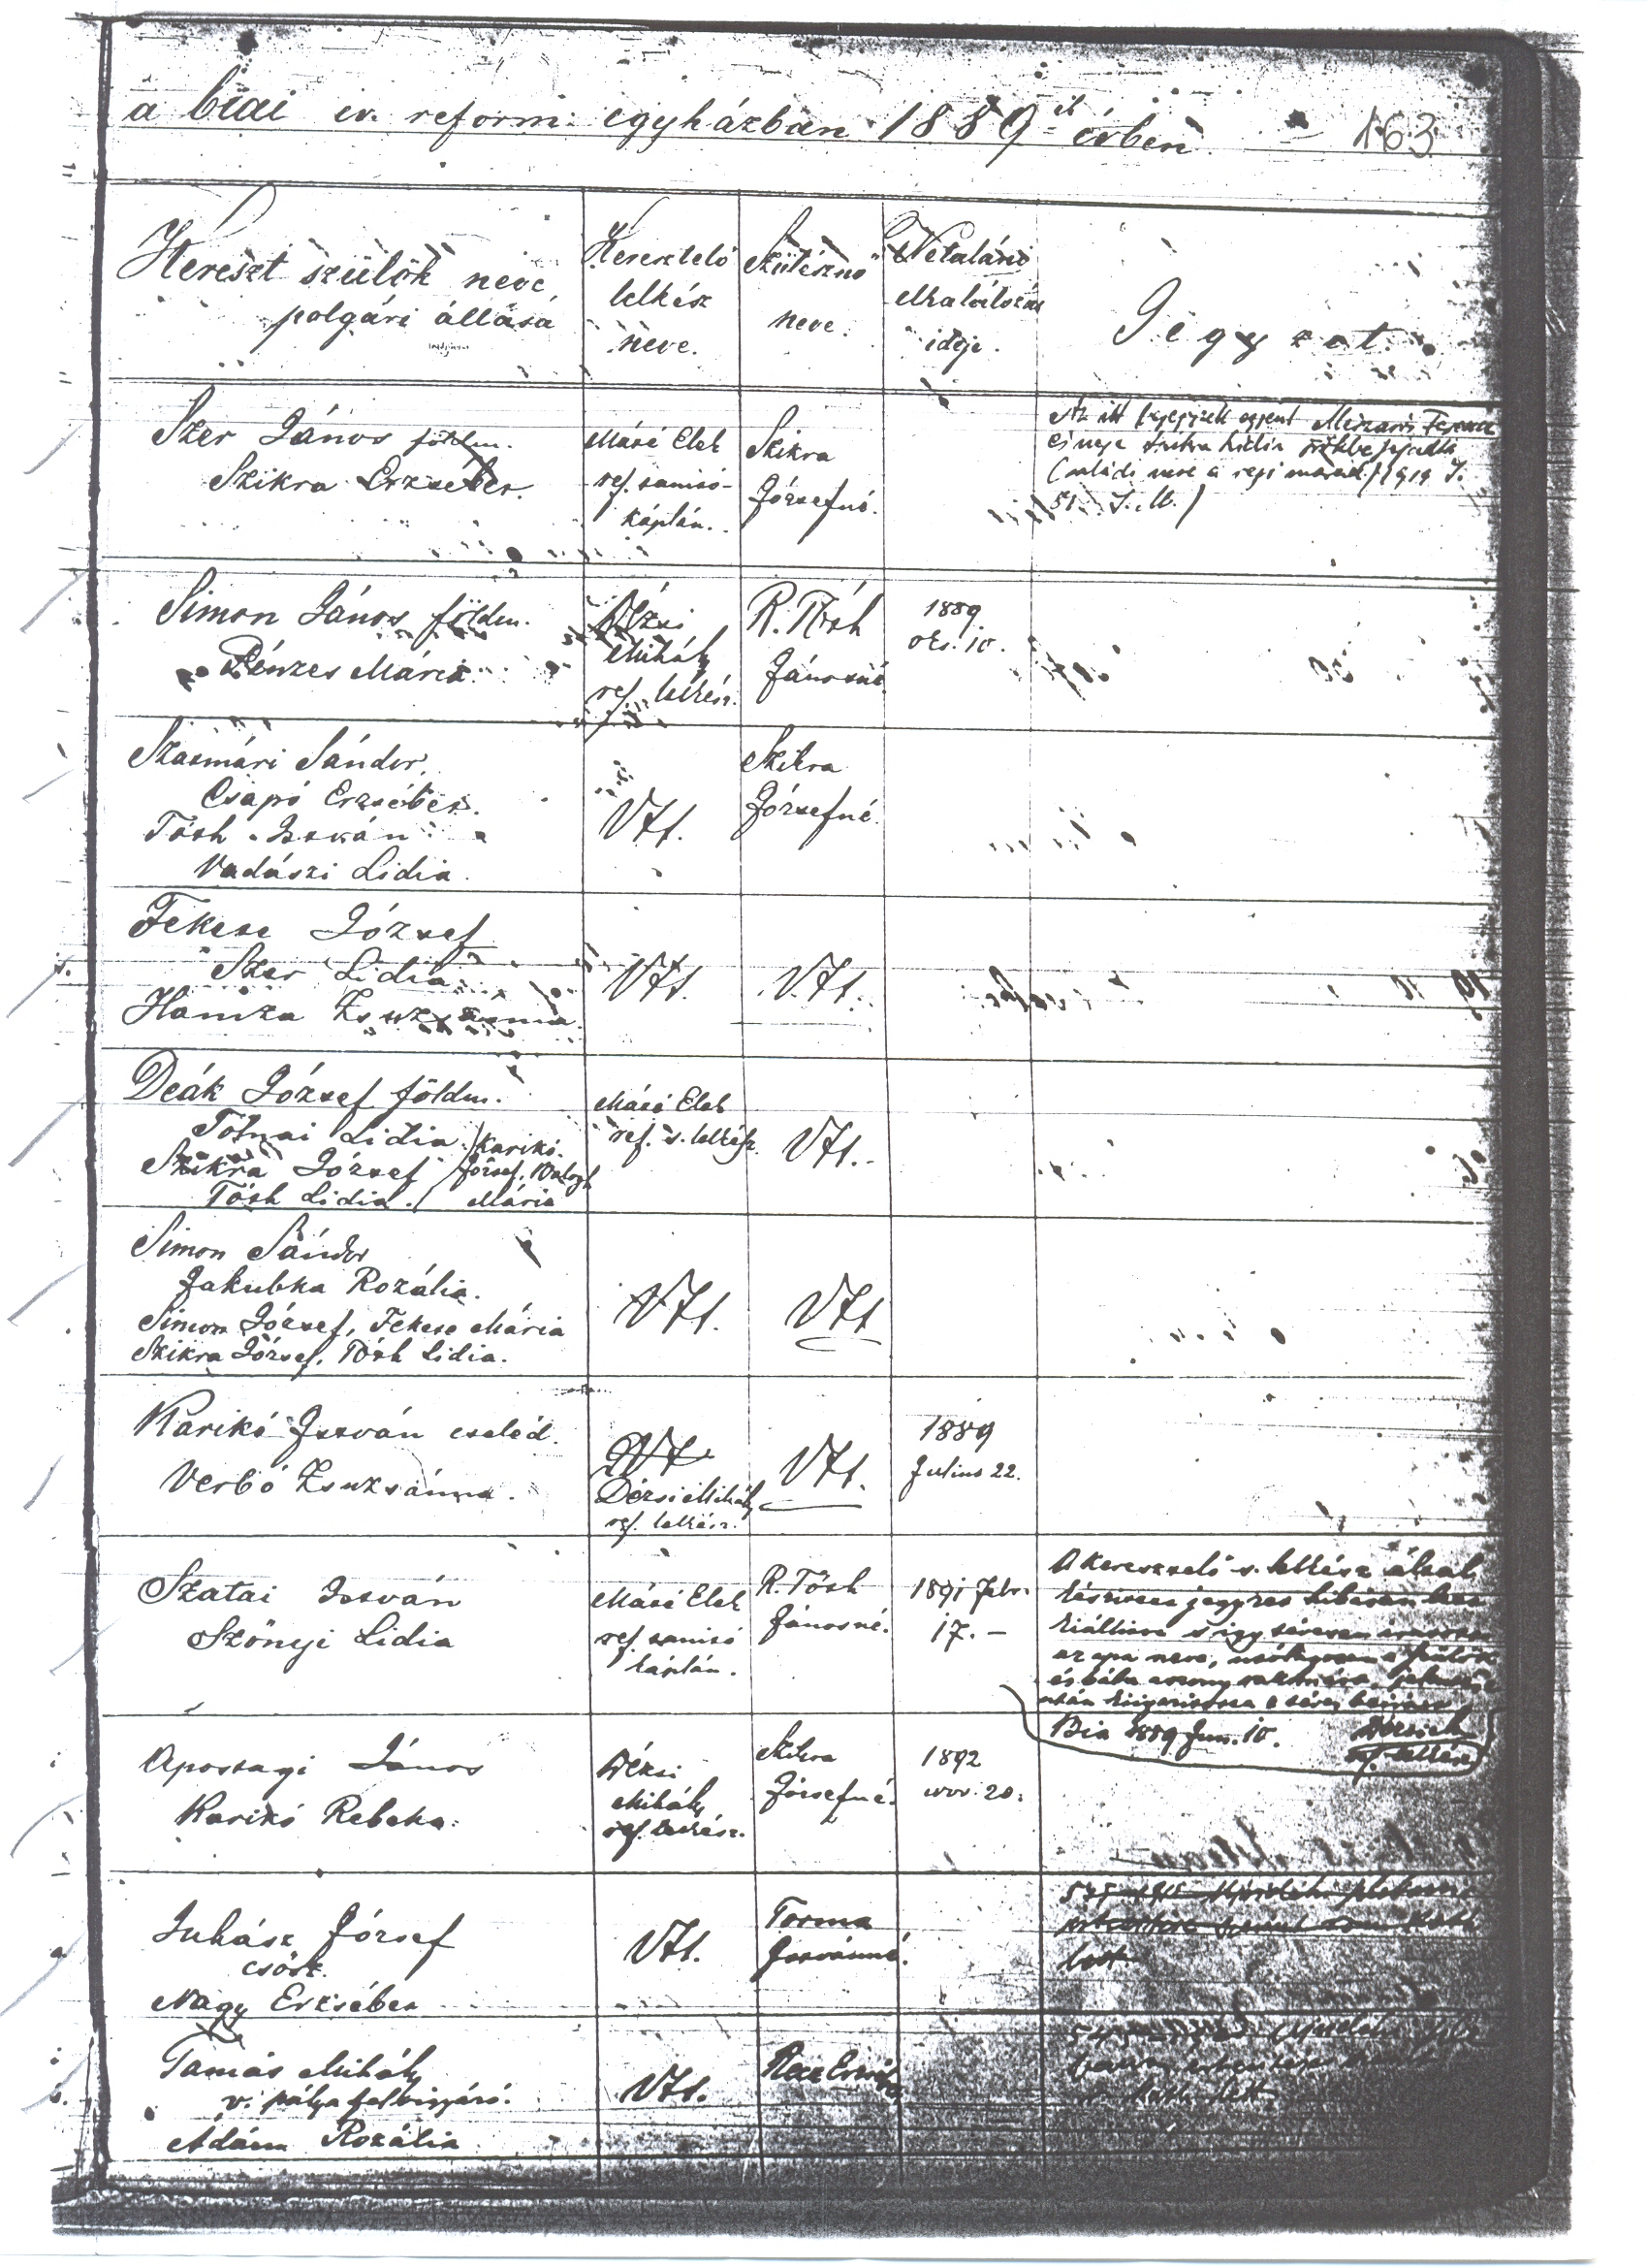 a biai ev. reform. egyházban 1889ik évben. 163
Kereszt szülők neve,
polgári állása
Keresztelő
lelkész
neve.
Szülésznő
neve.
Netaláni
elhalálozás
ideje.
Jegyzet.
Szer János földm.
Szikra Erzsébet.
Máté Elek
ref. s.
káplán.
Szikra
Józsefné.
Az itt egyént Mészáros Ferencz
és neje Lidia örökbe fogadta
Családi neve a régi marad / 1919 I.
51. I. M. /
Simon János földm.
Pénzes Mária.
Dézsi
Mihály
ref. lelkész.
R. Tóth
Jánosné
1889
okt. 10.
Szatmári Sándor,
Csapó Erzsébet.
Tóth István
Vadászi Lidia.
Vtt.
Szikra
Józsefné.
Fekete József
Szer Lidia
Hamza Zsuzsánna.
Vtt.
Vtt.
Deák József földm.
Tolnai Lidia.
Szikra József
Tóth Lidia.
Karikó
József, Balogh
Mária
Máté Elek
ref. s. lelkész.
Vtt.
Simon Sándor
Jakubka Rozália.
Simon József, Fekete Mária
Szikra József, Tóth Lidia.
Vtt.
Vtt
Karikó István cseléd.
Verbó Zsuzsánna.
Vtt
Dézsi Mihály
ref. lelkész.
Vtt.
1889
Julius 22.
Szatai István
Szőnyi Lidia
Máté Elek
ref.
káplán.
R. Tóth
Jánosné.
1891 Febr.
17. –
A keresztelő s. lelkész által
jegyzet hibásan
s így tévesen
az apa neve, utólagosan a szülők
és bába asszony
után a téves beirás
Bia 1889 Jun. 10.
ref. lelkész
Apostagi János
Karikó Rebeka.
Dézsi
Mihály
ref. lelkész.
Szikra
Józsefné.
1892
nov. 20.
Juhász József
csősz.
Nagy Erzsébet
Vtt.
Torma
Istvánné.
lett.
Tamás Mihály
v. pálya felvigyázó.
Ádám Rozália
Vtt.